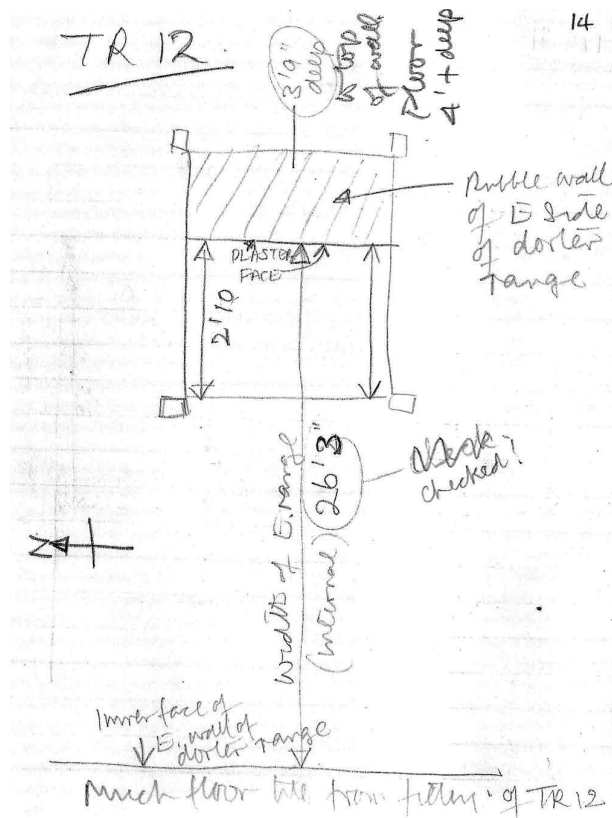 14
TR 12
3'9"
deep
to top
of wall
Floor
4'+ deep
Rubble wall
of E Side
of dorter
range
PLASTER
FACE
2'10
Width of E. range
(internal) 26'3"
checked!
N
Inner face of
E. wall of
dorter range
Much floor tile from filling of TR 12